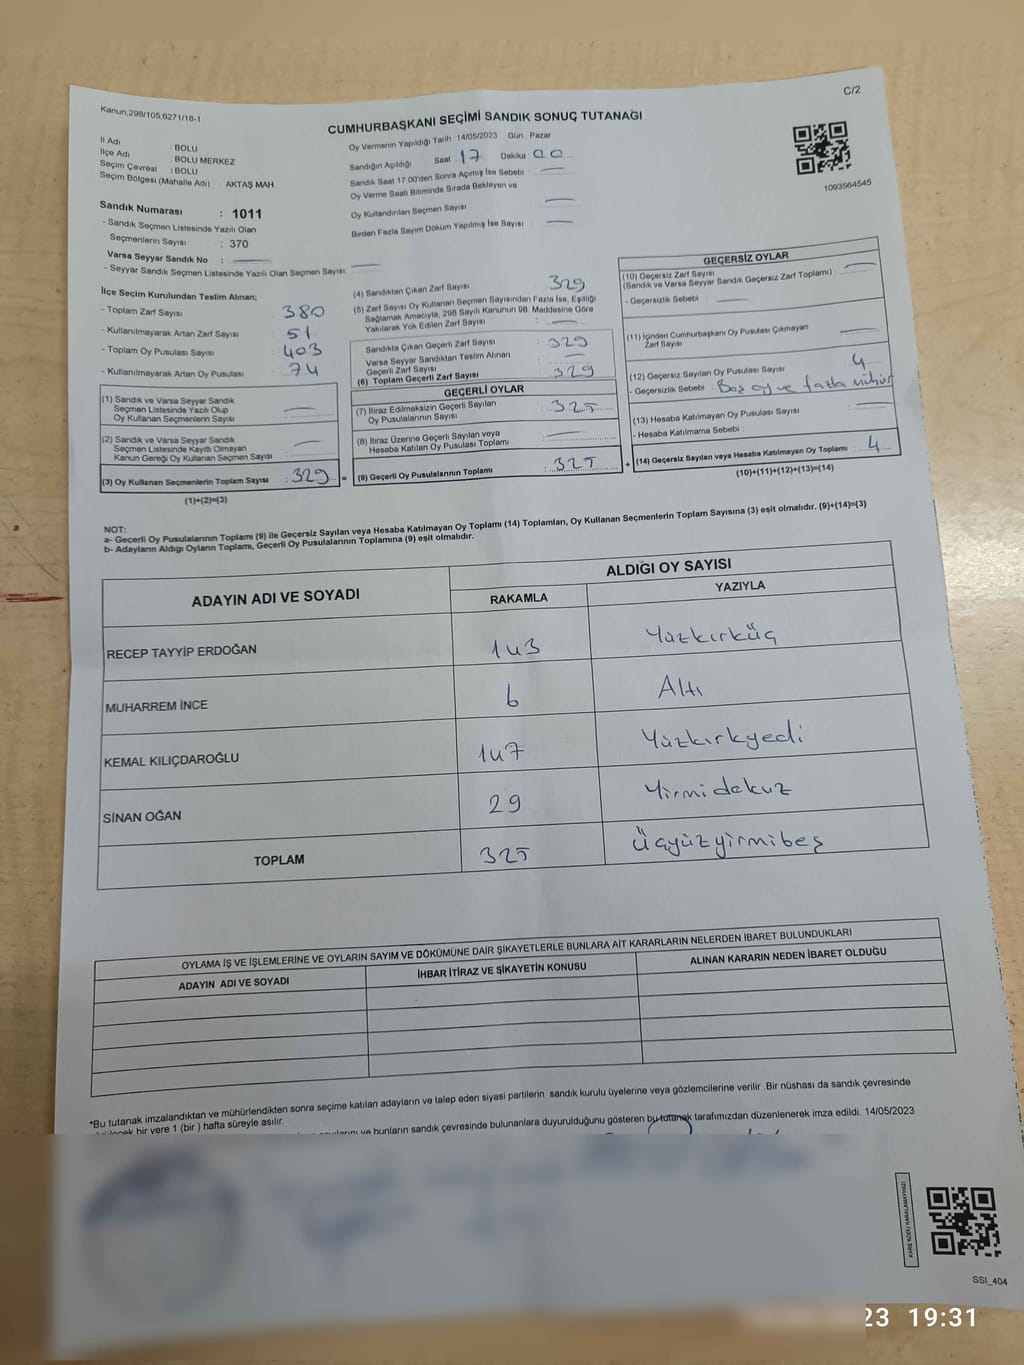 Kanun:298/105,6271/18-1
C/2
CUMHURBAŞKANI SEÇİMİ SANDIK SONUÇ TUTANAĞI
İl Adı : BOLU
İlçe Adı : BOLU MERKEZ
Seçim Çevresi : BOLU
Seçim Bölgesi (Mahalle Adı) : AKTAŞ MAH.
Sandık Numarası : 1011
- Sandık Seçmen Listesinde Yazılı Olan
Seçmenlerin Sayısı : 370
Varsa Seyyar Sandık No :
- Seyyar Sandık Seçmen Listesinde Yazılı Olan Seçmen Sayısı:
Oy Vermenin Yapıldığı Tarih : 14/05/2023 Gün : Pazar
Sandığın Açıldığı Saat 17 Dakika : 00
Sandık Saat 17.00'den Sonra Açılmış İse Sebebi :
Oy Verme Saati Bitiminde Sırada Bekleyen ve
Oy Kullandırılan Seçmen Sayısı
Birden Fazla Sayım Döküm Yapılmış İse Sayısı :
1093564545
İlçe Seçim Kurulundan Teslim Alınan;
- Toplam Zarf Sayısı : 380
- Kullanılmayarak Artan Zarf Sayısı : 51
- Toplam Oy Pusulası Sayısı : 403
- Kullanılmayarak Artan Oy Pusulası : 74
(1) Sandık ve Varsa Seyyar Sandık
Seçmen Listesinde Yazılı Olup
Oy Kullanan Seçmenlerin Sayısı
(2) Sandık ve Varsa Seyyar Sandık
Seçmen Listesinde Kayıtlı Olmayan
Kanun Gereği Oy Kullanan Seçmen Sayısı :
(3) Oy Kullanan Seçmenlerin Toplam Sayısı : 329 =
(1)+(2)=(3)
(4) Sandıktan Çıkan Zarf Sayısı : 329
(5) Zarf Sayısı Oy Kullanan Seçmen Sayısından Fazla İse, Eşitliği
Sağlamak Amacıyla, 298 Sayılı Kanunun 98. Maddesine Göre
Yakılarak Yok Edilen Zarf Sayısı :
Sandıkta Çıkan Geçerli Zarf Sayısı : 329
Varsa Seyyar Sandıktan Teslim Alınan
Geçerli Zarf Sayısı :
(6) Toplam Geçerli Zarf Sayısı : 329
GEÇERLİ OYLAR
(7) İtiraz Edilmeksizin Geçerli Sayılan
Oy Pusulalarının Sayısı : 325
(8) İtiraz Üzerine Geçerli Sayılan veya
Hesaba Katılan Oy Pusulası Toplamı :
(9) Geçerli Oy Pusulalarının Toplamı : 325 +
GEÇERSİZ OYLAR
(10) Geçersiz Zarf Sayısı
(Sandık ve Varsa Seyyar Sandık Geçersiz Zarf Toplamı) :
- Geçersizlik Sebebi :
(11) İçinden Cumhurbaşkanı Oy Pusulası Çıkmayan
Zarf Sayısı
(12) Geçersiz Sayılan Oy Pusulası Sayısı : 4
- Geçersizlik Sebebi : Boş oy ve fazla mühür
(13) Hesaba Katılmayan Oy Pusulası Sayısı :
- Hesaba Katılmama Sebebi :
(14) Geçersiz Sayılan veya Hesaba Katılmayan Oy Toplamı : 4
(10)+(11)+(12)+(13)=(14)
NOT:
a- Geçerli Oy Pusulalarının Toplamı (9) ile Geçersiz Sayılan veya Hesaba Katılmayan Oy Toplamı (14) Toplamları, Oy Kullanan Seçmenlerin Toplam Sayısına (3) eşit olmalıdır. (9)+(14)=(3)
b- Adayların Aldığı Oyların Toplamı, Geçerli Oy Pusulalarının Toplamına (9) eşit olmalıdır.
ADAYIN ADI VE SOYADI
ALDIĞI OY SAYISI
RAKAMLA YAZIYLA
RECEP TAYYİP ERDOĞAN 143 Yüzkırküç
MUHARREM İNCE 6 Altı
KEMAL KILIÇDAROĞLU 147 Yüzkırkyedi
SİNAN OĞAN 29 Yirmidokuz
TOPLAM 325 Üçyüzyirmibeş
OYLAMA İŞ VE İŞLEMLERİNE VE OYLARIN SAYIM VE DÖKÜMÜNE DAİR ŞİKAYETLERLE BUNLARA AİT KARARLARIN NELERDEN İBARET BULUNDUKLARI
ADAYIN ADI VE SOYADI İHBAR İTİRAZ VE ŞİKAYETİN KONUSU ALINAN KARARIN NEDEN İBARET OLDUĞU
*Bu tutanak imzalandıktan ve mühürlendikten sonra seçime katılan adayların ve talep eden siyasi partilerin sandık kurulu üyelerine veya gözlemcilerine verilir .Bir nüshası da sandık çevresinde
bir yere 1 (bir ) hafta süreyle asılır.
ve bunların sandık çevresinde bulunanlara duyurulduğunu gösteren bu tutanak tarafımızdan düzenlenerek imza edildi. 14/05/2023
KARE KODU KARALAMAYINIZ!
SSI_404
23 19:31